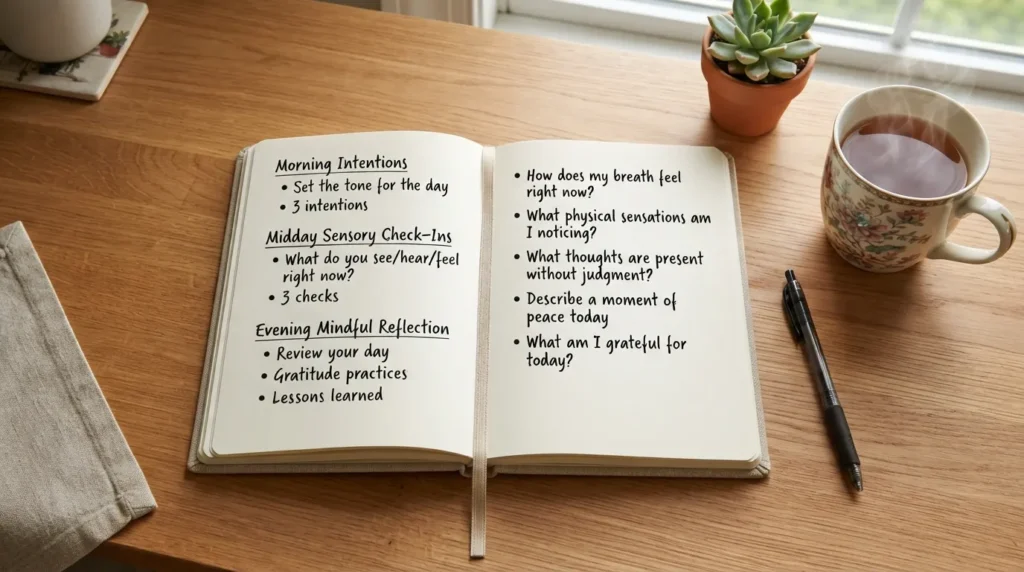 Morning Intentions
• Set the tone for the day
• 3 intentions
Midday Sensory Check-Ins
• What do you see/hear/feel
right now?
• 3 checks
Evening Mindful Reflection
• Review your day
• Gratitude practices
• Lessons learned
• How does my breath feel
right now?
• What physical sensations am
I noticing?
• What thoughts are present
without judgment?
• Describe a moment of
peace today
• What am I grateful for
today?